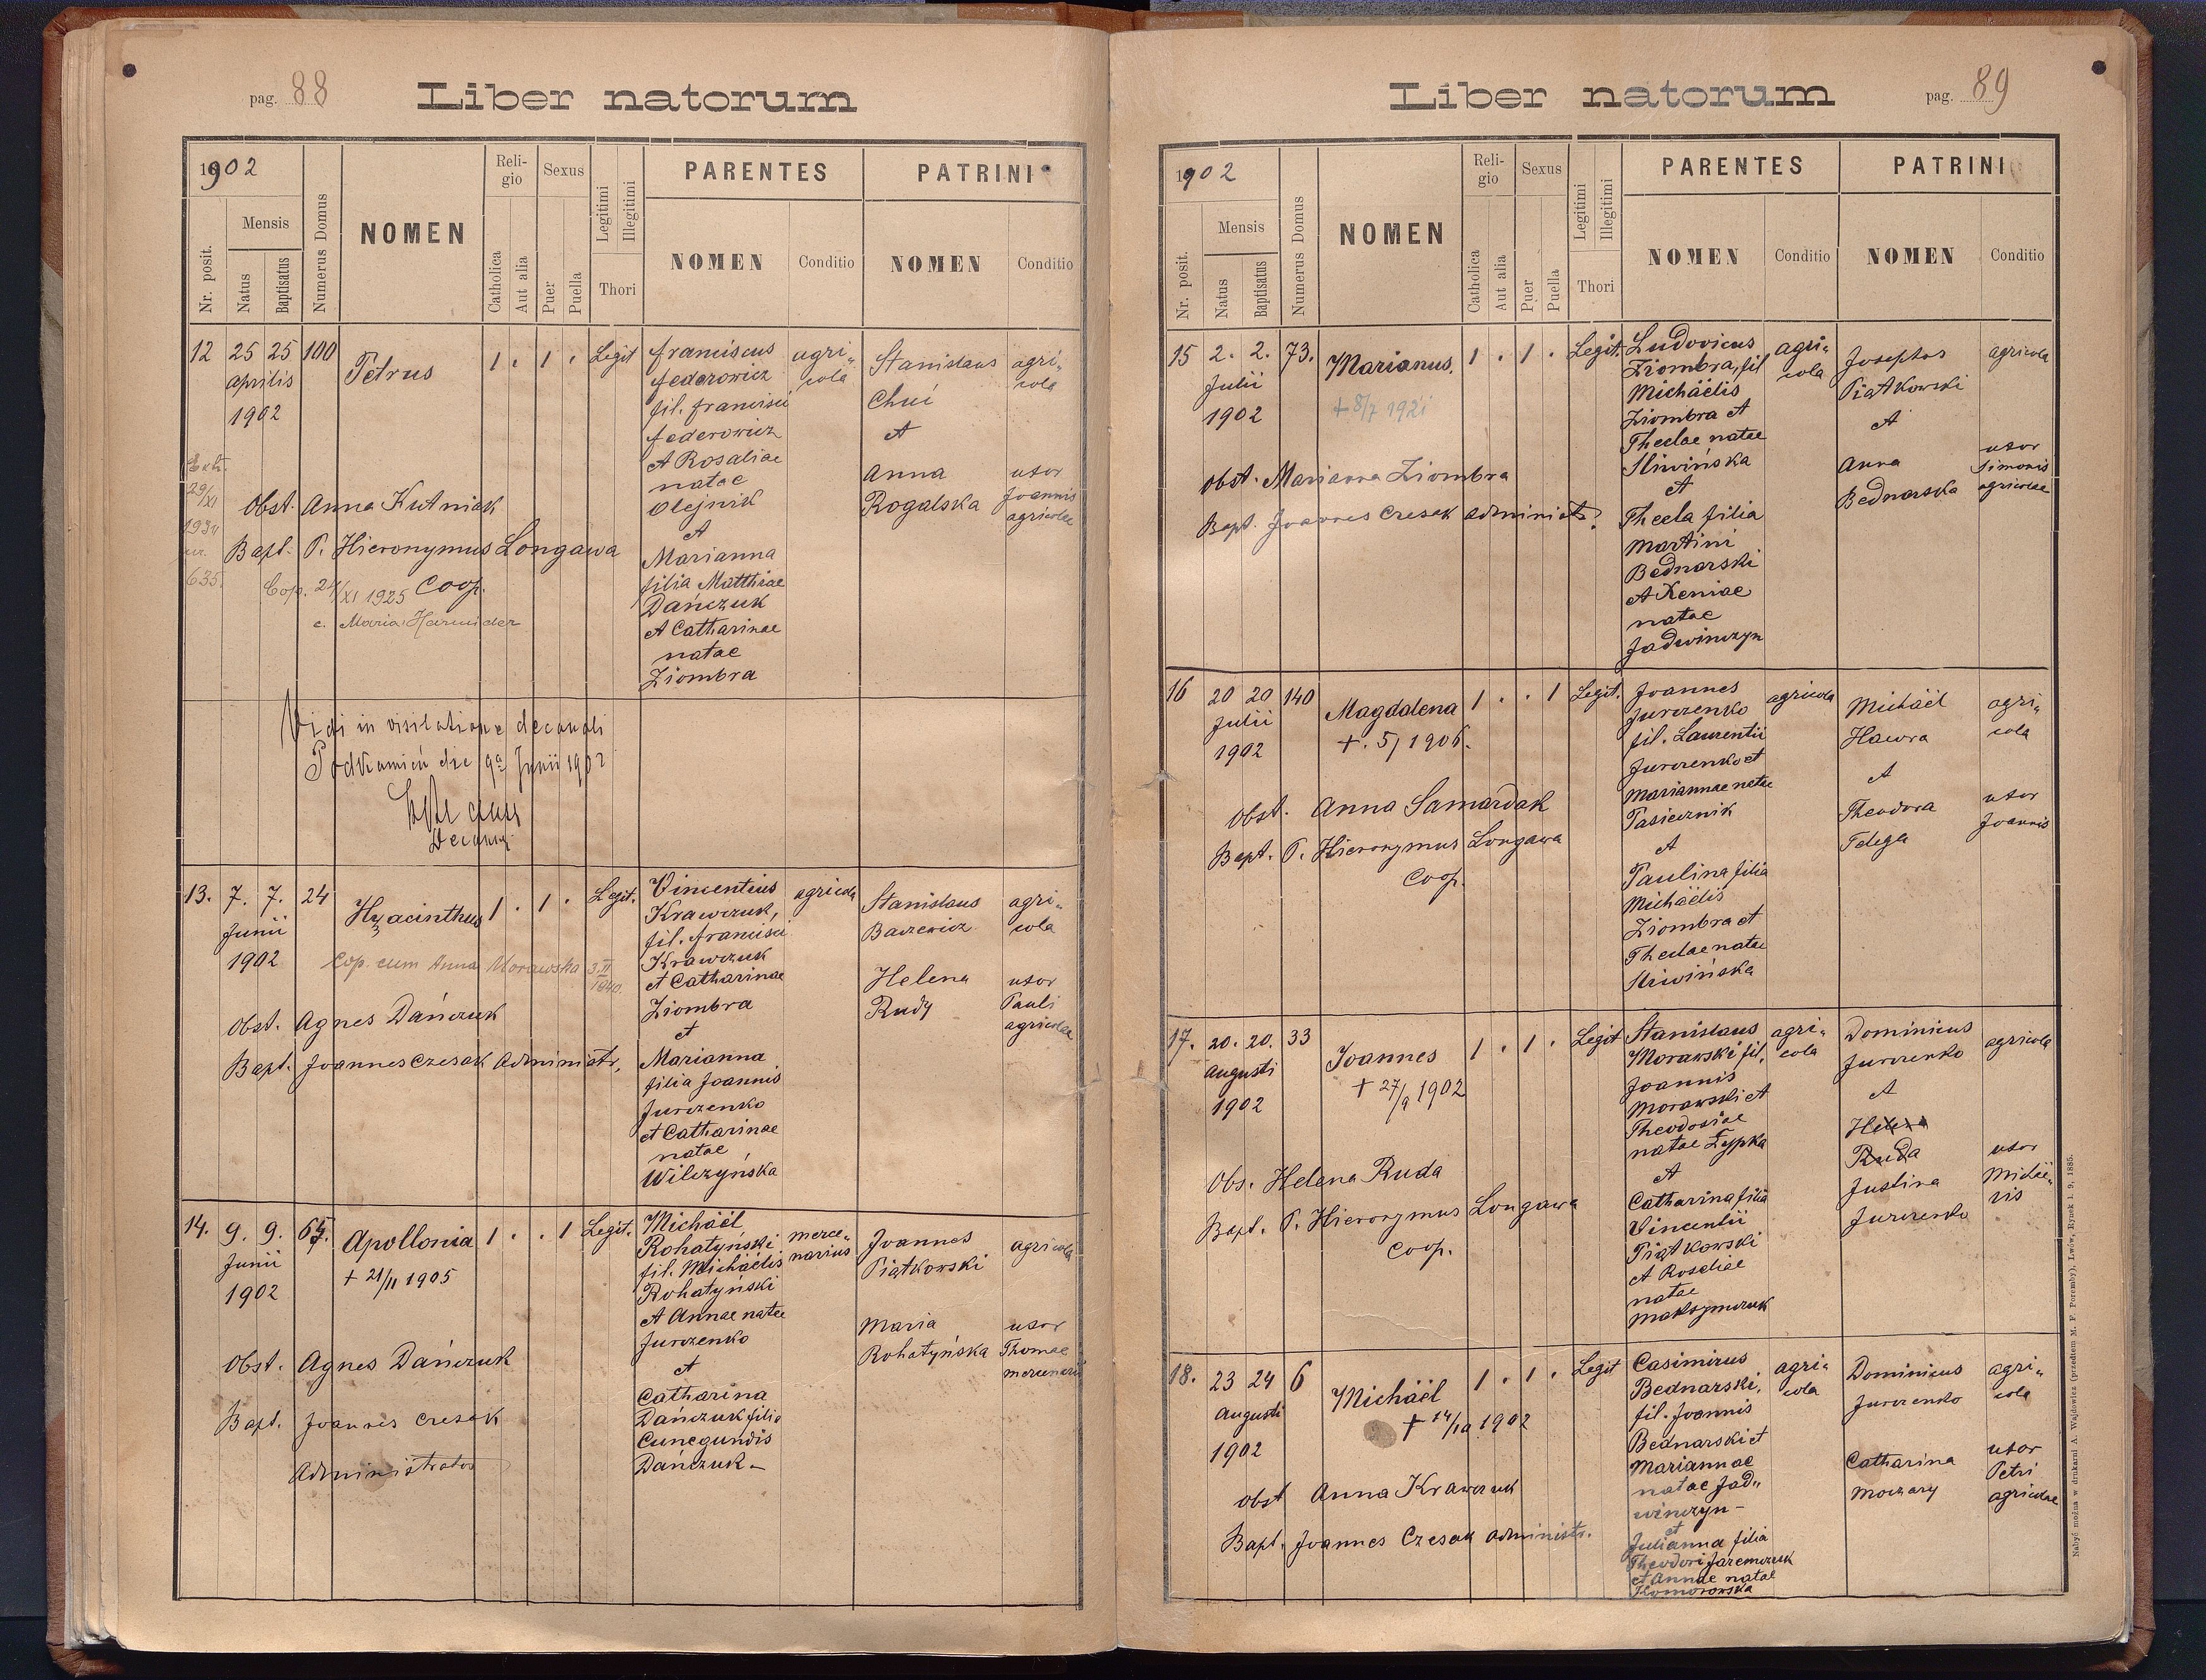 pag. 88
Liber natorum
1902
Nr. posit.
Mensis
Natus
Baptisatus
Numerus Domus
NOMEN
Religio
Catholica
Aut alia
Sexus
Puer
Puella
Legitimi
Illegitimi
Thori
PARENTES
NOMEN
Conditio
PATRINI
NOMEN
Conditio
12 25 25 100 Petrus 1 . 1 . Legit
aprilis
1902
Franciscus
Federowicz
fil. Francisci
Federowicz
et Rosaliae
natae
Olejnik
et
Marianna
filia Matthiae
Dańczuk
et Catharinae
natae
Ziombra
agri-
cola
Stanislaus
Chuć
et
Anna
Rogalska
agri-
cola
uxor
Joannis
agricolae
29/XI
635.
Obst. Anna Kutniak
Bapt. P. Hieronymus Longawa
Coop.
Cop. 24/XI 1925
c. Maria
Vidi in visitatione decanali
Podkamień die 9a Junii 1902
13. 7. 7. 24 Hyacinthus 1 . 1 . Legit.
Junii
1902
Cop. cum Anna Morawska 3/II 1940.
Obst. Agnes Dańczuk
Bapt. Joannes Czesak Administr.
Vincentius
Krawczuk,
fil. Francisci
Krawczuk
et Catharinae
Ziombra
et
Marianna
filia Joannis
Jurczenko
et Catharinae
natae
Wilczyńska
agricola
Stanislaus
Baczewicz
Helena
Rudy
agri-
cola
uxor
Pauli
agricolae
14. 9. 9. Apollonia 1 . . 1 Legit.
Junii
1902
+ 21/II 1905
Obst. Agnes Dańczuk
Bapt. Joannes Czesak
Administrator
Michäel
Rohatyński
fil. Michäelis
Rohatyński
et Annae natae
Jurczenko
et
Catharina
Dańczuk filia
Cunegundis
Dańczuk -
merce-
narius
Joannes
Piątkowski
Maria
Rohatyńska
agricola
uxor
Thomae
mercenarii
pag. 89
Liber natorum
1902
Nr. posit.
Mensis
Natus
Baptisatus
Numerus Domus
NOMEN
Religio
Catholica
Aut alia
Sexus
Puer
Puella
Legitimi
Illegitimi
Thori
PARENTES
NOMEN
Conditio
PATRINI
NOMEN
Conditio
15 2. 2. 73. Marianus. 1 . 1 . Legit.
Julii
1902
+ 8/7 1921
Obst. Marianna Ziombra
Bapt. Joannes Czesak administr.
Ludovicus
Ziombra, fil
Michäelis
Ziombra et
Theclae natae
Sliwińska
et
Thecla filia
Martini
Bednarski
et Xeniae
natae
Jadwinczyn
agri-
cola
Josephus
Piątkowski
et
Anna
Bednarska
agricola
uxor
Simonis
agricolae
16 20 20 140 Magdalena 1 . . 1 Legit.
Julii
1902
+. 5/ 1906.
Obst. Anna Samardak
Bapt. P. Hieronymus Longawa
Coop.
Joannes
Jurczenko
fil. Laurentii
Jurczenko et
Mariannae natae
Pasiecznik
et
Paulina filia
Michäelis
Ziombra et
Theclae natae
Sliwińska
agricola
Michäel
Hawra
et
Theodora
Telega
agri-
cola
uxor
Joannis
17. 20. 20. 33 Joannes 1 . 1 . Legit
Augusti
1902
+ 27/9 1902
Obs. Helena Ruda
Bapt. P. Hieronymus Longawa
Coop.
Stanislaus
Morawski fil.
Joannis
Morawski et
Theodosiae
natae Zypka
et
Catharina filia
Vincentii
Piątkowski
et Rosaliae
natae
Maksymczuk
agri-
cola
Dominicus
Jurczenko
et
Helena
Ruda
Justina
Jurczenko
agricola
uxor
18. 23 24 6 Michäel 1 . 1 . Legit
Augusti
1902
+ 14/10 1902
Obst Anna Krawczuk
Bapt. Joannes Czesak administr.
Casimirus
Bednarski,
fil. Joannis
Bednarski et
Mariannae
natae Jad-
winczyn -
et
Julianna filia
Theodori Jaremczuk
et Annae natae
Komorowska
agri-
cola
Dominicus
Jurczenko
Catharina
Moczary
agri-
cola
uxor
Petri
agricolae
Nabyć można w drukarni A. Wajdowicz (przedtem M. F. Poremby), Lwów, Rynek l. 9, 1885.